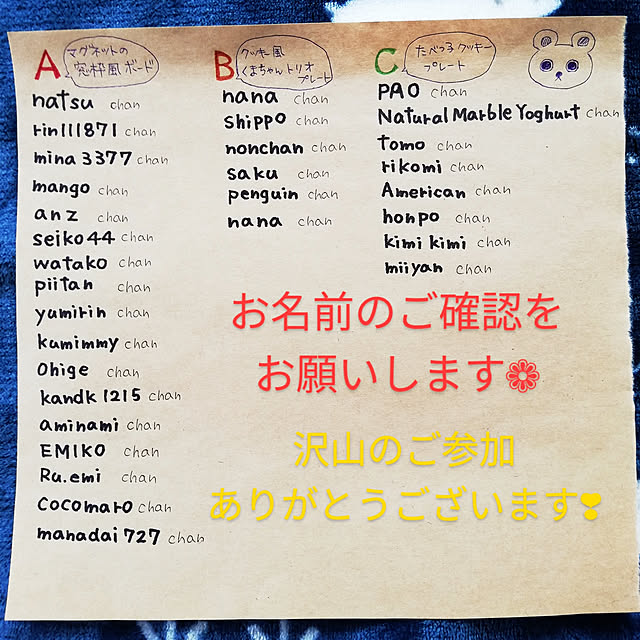 A マグネットの
窓枠風ボード
natsu chan
rin111871 chan
mina3377 chan
mango chan
anz chan
seiko44 chan
watako chan
piitan chan
yumirin chan
kamimmy chan
Ohige chan
kandk1215 chan
aminami chan
EMIKO chan
Ru.emi chan
Cocomaro chan
manadai727 chan
B クッキー風
くまちゃんトリオ
プレート
nana chan
shippo chan
nonchan chan
saku chan
penguin chan
nana chan
C たべっ子クッキー
プレート
PAO chan
Natural Marble Yoghurt chan
tomo chan
rikomi chan
American chan
honpo chan
kimi kimi chan
miiyan chan
お名前のご確認を
お願いします❁
沢山のご参加
ありがとうございます❣